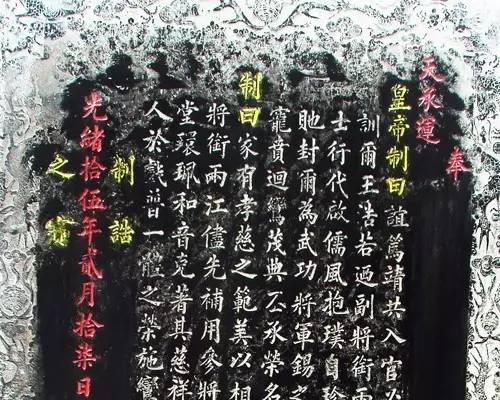 奉
天承運
皇帝制曰誼篤靖共入官必
訓爾王浩若迺副將銜兩
士行代啟儒風抱璞自珍
貤封爾為武功將軍錫之
寵賁迴鸞茂典丕承榮名
制曰家有孝慈之範美以相
將銜兩江儘先補用參將
堂環珮和音克著其慈祥
人於戲晉一體之榮施鸞
制誥
光緒拾伍年貳月拾柒日
之寶